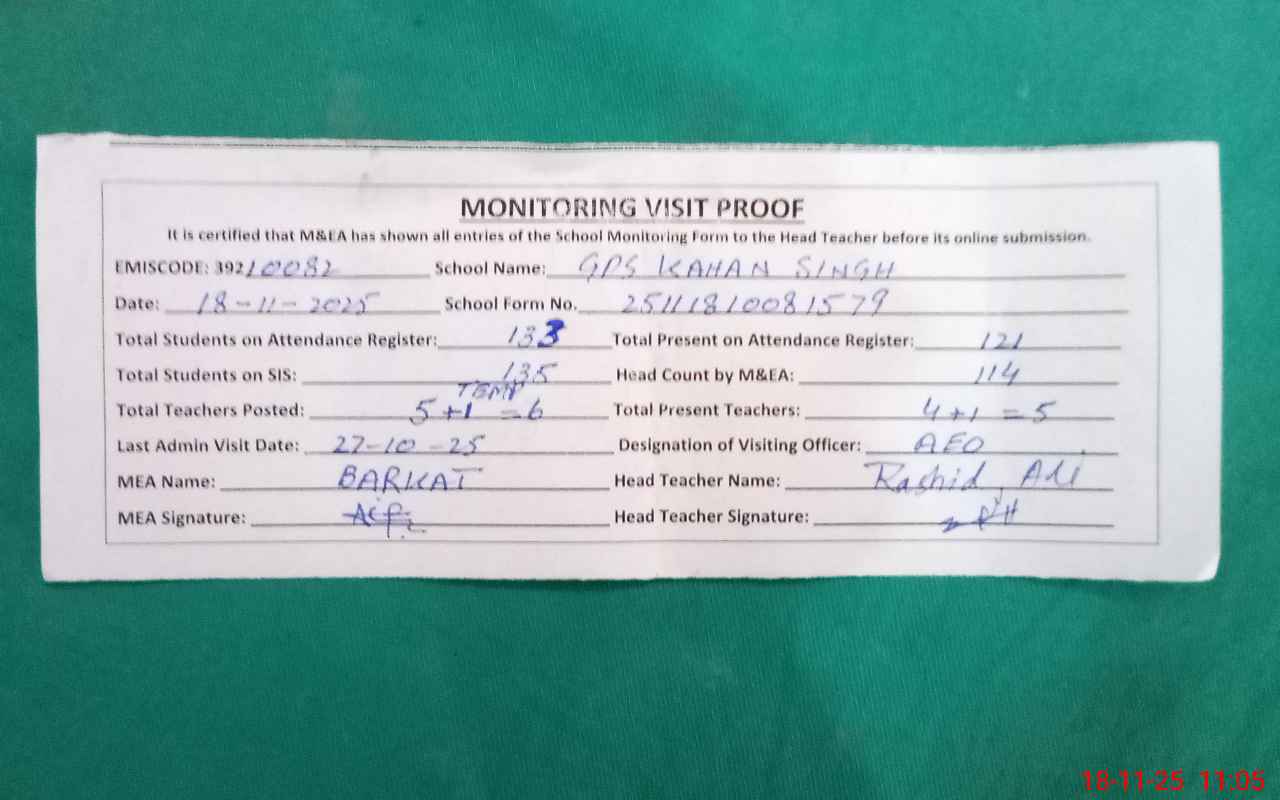 MONITORING VISIT PROOF
It is certified that M&EA has shown all entries of the School Monitoring Form to the Head Teacher before its online submission.
EMISCODE: 39210082 School Name: GPS KAHAN SINGH
Date: 18-11-2025 School Form No. 25111810081579
Total Students on Attendance Register: 133 Total Present on Attendance Register: 121
Total Students on SIS: 135 Head Count by M&EA: 114
TEMP
Total Teachers Posted: 5+1 =6 Total Present Teachers: 4+1 =5
Last Admin Visit Date: 27-10-25 Designation of Visiting Officer: AEO
MEA Name: BARKAT Head Teacher Name: Rashid Ali
MEA Signature: Head Teacher Signature:
18-11-25 11:05